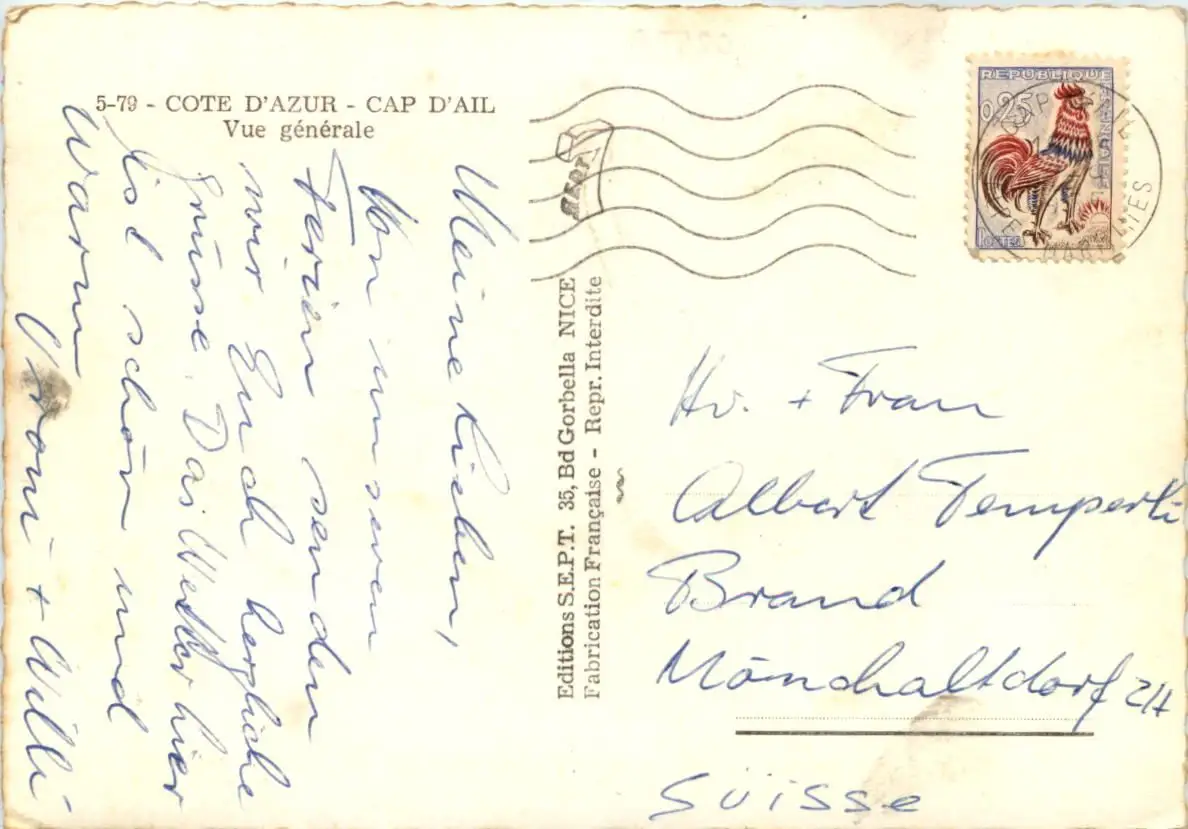 5-79 - COTE D'AZUR - CAP D'AIL
Vue générale
Meine Lieben,
Von unseren
Ferien senden
wir Euch herzliche
Grüsse. Das Wetter hier
ist schön und
warm
Vroni + Willi
Editions S.E.P.T. 35, Bd Gorbella NICE
Fabrication Française - Repr. Interdite
REPUBLIQUE
FRANÇAISE
0,25
POSTES
Hr. + Frau
Albert Temperli
Brand
Mönchaltdorf ZH
Süisse